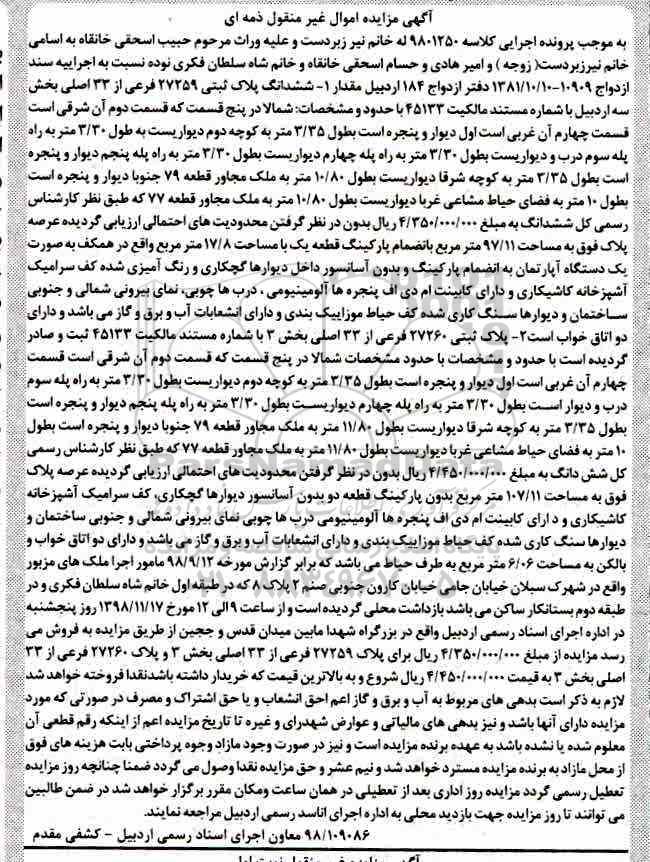 آگهی مزایده اموال غیر منقول ذمه ای
به موجب پرونده اجرایی کلاسه ۹۸۰۱۲۵۰ له خانم نیر زبردست و علیه وراث مرحوم حبیب اسحقی خانقاه به اسامی
خانم نیرزبردست( زوجه ) و امیر هادی و حسام اسحقی خانقاه و خانم شاه سلطان فکری نوده نسبت به اجراییه سند
ازدواج ۱۰۹۰۹-۱۳۸۱/۱۰/۱۰ دفتر ازدواج ۱۸۴ اردبیل مقدار ۱- ششدانگ پلاک ثبتی ۲۷۲۵۹ فرعی از ۳۳ اصلی بخش
سه اردبیل با شماره مستند مالکیت ۴۵۱۳۳ با حدود و مشخصات: شمالا در پنج قسمت که قسمت دوم آن شرقی است
قسمت چهارم آن غربی است اول دیوار و پنجره است بطول ۳/۳۵ متر به کوچه دوم دیواریست به طول ۳/۳۰ متر به راه
پله سوم درب و دیواریست بطول ۳/۳۰ متر به راه پله چهارم دیواریست بطول ۳/۳۰ متر به راه پله پنجم دیوار و پنجره
است بطول ۳/۳۵ متر به کوچه شرقا دیواریست بطول ۱۰/۸۰ متر به ملک مجاور قطعه ۷۹ جنوبا دیوار و پنجره است
بطول ۱۰ متر به فضای حیاط مشاعی غربا دیواریست بطول ۱۰/۸۰ متر به ملک مجاور قطعه ۷۷ که طبق نظر کارشناس
رسمی کل ششدانگ به مبلغ ۴/۳۵۰/۰۰۰/۰۰۰ ریال بدون در نظر گرفتن محدودیت های احتمالی ارزیابی گردیده عرصه
پلاک فوق به مساحت ۹۷/۱۱ متر مربع بانضمام پارکینگ قطعه یک با مساحت ۱۷/۸ متر مربع واقع در همکف به صورت
یک دستگاه آپارتمان به انضمام پارکینگ و بدون آسانسور داخل دیوارها گچکاری و رنگ آمیزی شده کف سرامیک
آشپزخانه کاشیکاری و دارای کابینت ام دی اف پنجره ها آلومینیومی ، درب ها چوبی، نمای بیرونی شمالی و جنوبی
ساختمان و دیوارها سنگ کاری شده کف حیاط موزاییک بندی و دارای انشعابات آب و برق و گاز می باشد و دارای
دو اتاق خواب است۲- پلاک ثبتی ۲۷۲۶۰ فرعی از ۳۳ اصلی بخش ۳ با شماره مستند مالکیت ۴۵۱۳۳ ثبت و صادر
گردیده است با حدود و مشخصات با حدود مشخصات شمالا در پنج قسمت که قسمت دوم آن شرقی است قسمت
چهارم آن غربی است اول دیوار و پنجره است بطول ۳/۳۵ متر به کوچه دوم دیواریست بطول ۳/۳۰ متر به راه پله سوم
درب و دیوار است بطول ۳/۳۰ متر به راه پله چهارم دیواریست بطول ۳/۳۰ متر به راه پله پنجم دیوار و پنجره است
بطول ۳/۳۵ متر به کوچه شرقا دیواریست بطول ۱۱/۸۰ متر به ملک مجاور قطعه ۷۹ جنوبا دیوار و پنجره است بطول
۱۰ متر به فضای حیاط مشاعی غربا دیواریست بطول ۱۱/۸۰ متر به ملک مجاور قطعه ۷۷ که طبق نظر کارشناس رسمی
کل شش دانگ به مبلغ ۴/۴۵۰/۰۰۰/۰۰۰ ریال بدون در نظر گرفتن محدودیت های احتمالی ارزیابی گردیده عرصه پلاک
فوق به مساحت ۱۰۷/۱۱ متر مربع بدون پارکینگ قطعه دو بدون آسانسور دیوارها گچکاری، کف سرامیک آشپزخانه
کاشیکاری و دارای کابینت ام دی اف پنجره ها آلومینیومی درب ها چوبی نمای بیرونی شمالی و جنوبی ساختمان و
دیوارها سنگ کاری شده کف حیاط موزاییک بندی و دارای انشعابات آب و برق و گاز می باشد و دارای دو اتاق خواب و
بالکن به مساحت ۶/۰۶ متر مربع به طرف حیاط می باشد که برابر گزارش مورخه ۹۸/۹/۱۲ مامور اجرا ملک های مزبور
واقع در شهرک سبلان خیابان جامی خیابان کارون جنوبی صنم ۲ پلاک ۸ که در طبقه اول خانم شاه سلطان فکری و در
طبقه دوم بستانکار ساکن می باشد بازداشت محلی گردیده است و از ساعت ۹ الی ۱۲ مورخ ۱۳۹۸/۱۱/۱۷ روز پنجشنبه
در اداره اجرای اسناد رسمی اردبیل واقع در بزرگراه شهدا مابین میدان قدس و ججین از طریق مزایده به فروش می
رسد مزایده از مبلغ ۴/۳۵۰/۰۰۰/۰۰۰ ریال برای پلاک ۲۷۲۵۹ فرعی از ۳۳ اصلی بخش ۳ و پلاک ۲۷۲۶۰ فرعی از ۳۳
اصلی بخش ۳ به قیمت ۴/۴۵۰/۰۰۰/۰۰۰ ریال شروع و به بالاترین قیمت که خریدار داشته باشدنقدا فروخته خواهد شد
لازم به ذکر است بدهی های مربوط به آب و برق و گاز اعم احق انشعاب و یا حق اشتراک و مصرف در صورتی که مورد
مزایده دارای آنها باشد و نیز بدهی های مالیاتی و عوارض شهدرای و غیره تا تاریخ مزایده اعم از اینکه رقم قطعی آن
معلوم شده یا نشده باشد به عهده برنده مزایده است و نیز در صورت وجود مازاد وجوه پرداختی بابت هزینه های فوق
از محل مازاد به برنده مزایده مسترد خواهد شد و نیم عشر و حق مزایده نقدا وصول می گردد ضمنا چنانچه روز مزایده
تعطیل رسمی گردد مزایده روز اداری بعد از تعطیلی در همان ساعت ومکان مقرر برگزار خواهد شد در ضمن طالبین
می توانند تا روز مزایده جهت بازدید محلی به اداره اجرای اناسد رسمی اردبیل مراجعه نمایند.
۹۸/۱۰۹۰۸۶ معاون اجرای اسناد رسمی اردبیل - کشفی مقدم